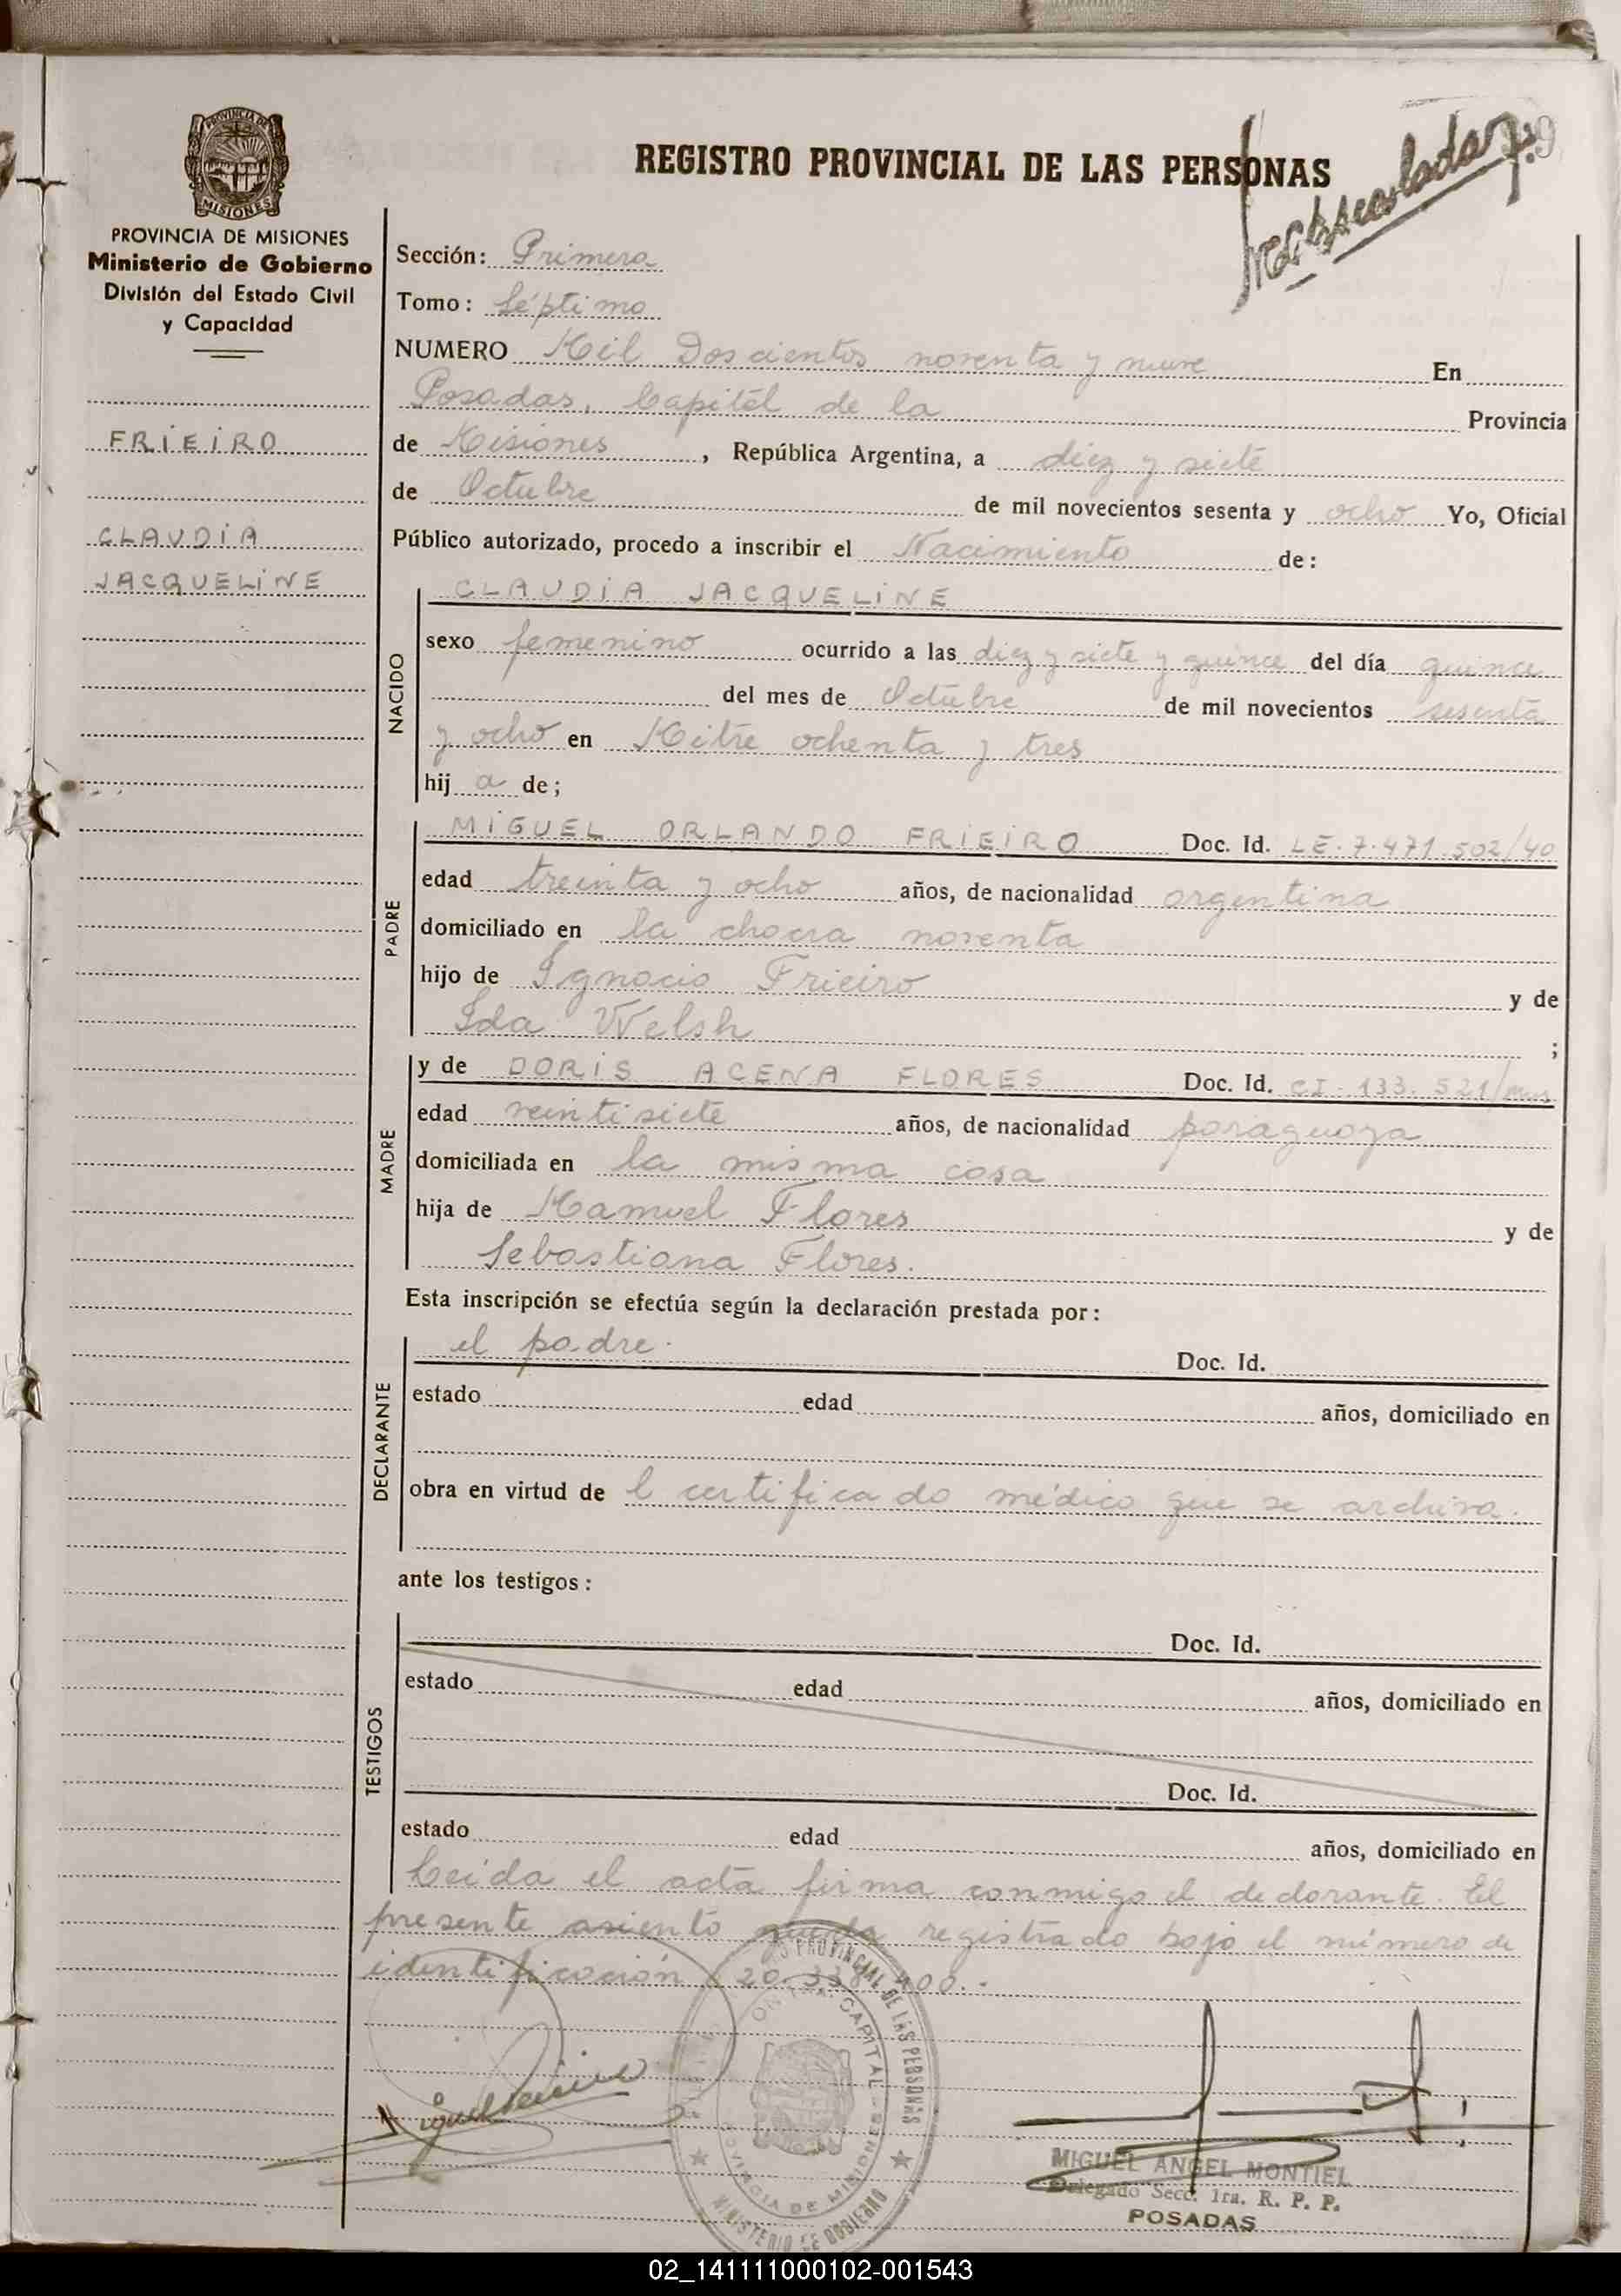 REGISTRO PROVINCIAL DE LAS PERSONAS
PROVINCIA DE
MISIONES
PROVINCIA DE MISIONES
Ministerio de Gobierno
División del Estado Civil
y Capacidad
FRIEIRO
CLAUDIA
JACQUELINE
Sección: Primera
Tomo: Séptimo
NUMERO Mil Doscientos noventa y nueve En
Posadas, Capital de la Provincia
de Misiones, República Argentina, a diez y siete
de Octubre de mil novecientos sesenta y ocho Yo, Oficial
Público autorizado, procedo a inscribir el Nacimiento de:
NACIDO
CLAUDIA JACQUELINE
sexo femenino ocurrido a las diez y siete y quince del día quince
del mes de Octubre de mil novecientos sesenta
y ocho en Mitre ochenta y tres
hij a de;
PADRE
MIGUEL ORLANDO FRIEIRO Doc. Id. LE.7.471.502/40
edad treinta y ocho años, de nacionalidad argentina
domiciliado en la chacra noventa
hijo de Ignacio Frieiro y de
Ida Welsh ;
MADRE
y de DORIS ACENA FLORES Doc. Id. CI. 133.521/mns
edad veintisiete años, de nacionalidad paraguaya
domiciliada en la misma casa
hija de Manuel Flores y de
Sebastiana Flores.
Esta inscripción se efectúa según la declaración prestada por:
DECLARANTE
el padre. Doc. Id.
estado edad años, domiciliado en
obra en virtud de l certificado médico que se archiva.
ante los testigos:
TESTIGOS
Doc. Id.
estado edad años, domiciliado en
Doc. Id.
estado edad años, domiciliado en
Leída el acta firma conmigo el declarante. El
presente asiento queda registrado bajo el número de
identificación 20.338.400.-
PROVINCIAL DE LAS PERSONAS
CAPITAL
PROVINCIA DE MISIONES
MINISTERIO DE GOBIERNO
MIGUEL ANGEL MONTIEL
Delegado Secc. 1ra. R. P. P.
POSADAS
02_141111000102-001543